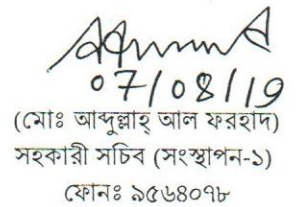 ০৭/০৪/19
(মোঃ আব্দুল্লাহ্ আল ফরহাদ)
সহকারী সচিব (সংস্থাপন-১)
ফোনঃ ৯৫৬৪০৭৮